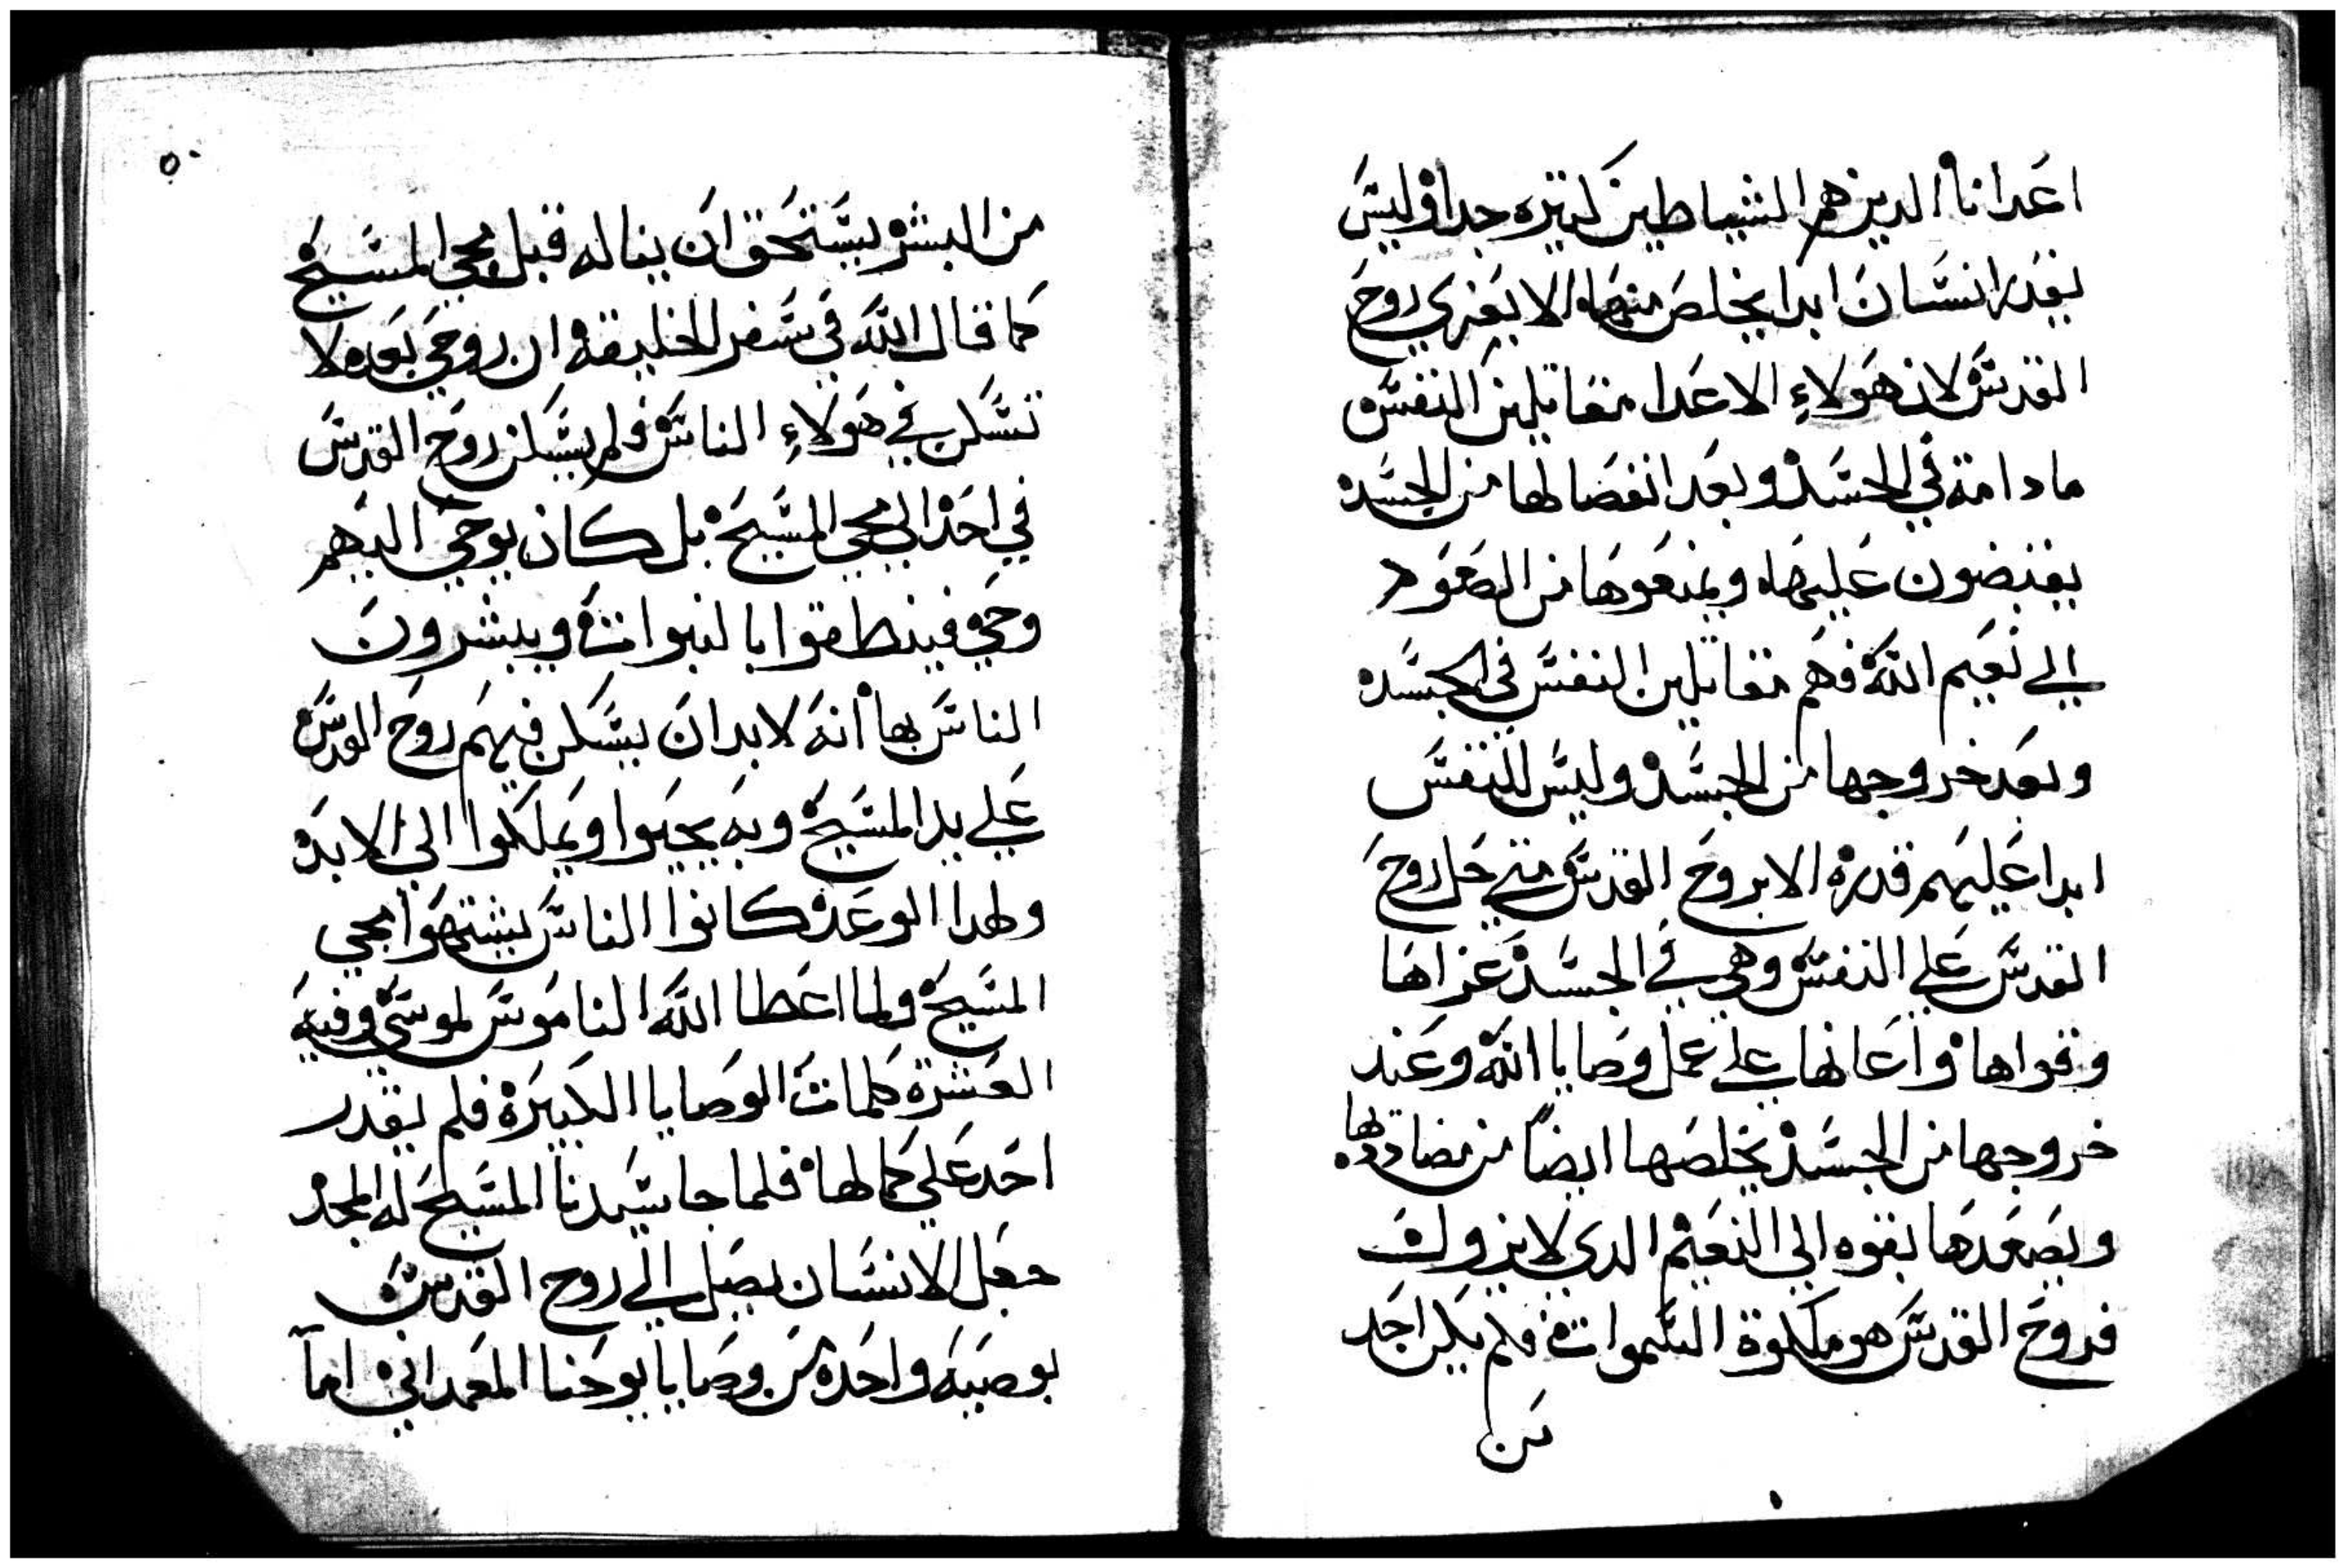 اعدانا الدين هم الشياطين كتيره جدا وليس
يقدر انسان ابدا يخلص منهاه الا بعزي روح
القدس لان هولاء الاعدا مقاتلين النفس
مادامة في الجسد وبعد انفصالها من الجسد
يقبضون عليهاه ويمنعوها من الصعود
الي نعيم الله فهم مقاتلين النفس في الجسد
وبعد خروجها من الجسد وليس للنفس
ابدا عليهم قدره الا بروح القدس متي حل روح
القدس علي النفس وهي في الجسد عزاها
وقواها واعانها علي عمل وصايا الله وعند
خروجها من الجسد يخلصها ايضا من مضاددتها
ويصعدها بقوه الي النعيم الدي لا يزول
فروح القدس هو ملكوة السموات فلم يكن احد
من
٥٠
من البشر يستحق ان يناله قبل مجي المسيح
كما قال الله في سفر الخليقة ان روحي بعد لا
تسكن في هولاء الناس فلم يسكن روح القدس
في احد الي مجي المسيح بل كان يوحي اليهم
وحي فينطقوا بالنبوات ويبشرون
الناس بها انه لابد ان يسكن فيهم روح القدس
علي يد المسيح وبه يحيوا ويملكوا الي الابد
ولهدا الوعد كانوا الناس يشتهوا مجي
المسيح ولما اعطا الله الناموس لموسي وفيه
العشرة كلمات الوصايا الكبيرة فلم يقدر
احد علي كمالها فلما جا سيدنا المسيح له المجد
جعل الانسان يصل الي روح القدس
بوصيه واحده من وصايا يوحنا المعمداني اما